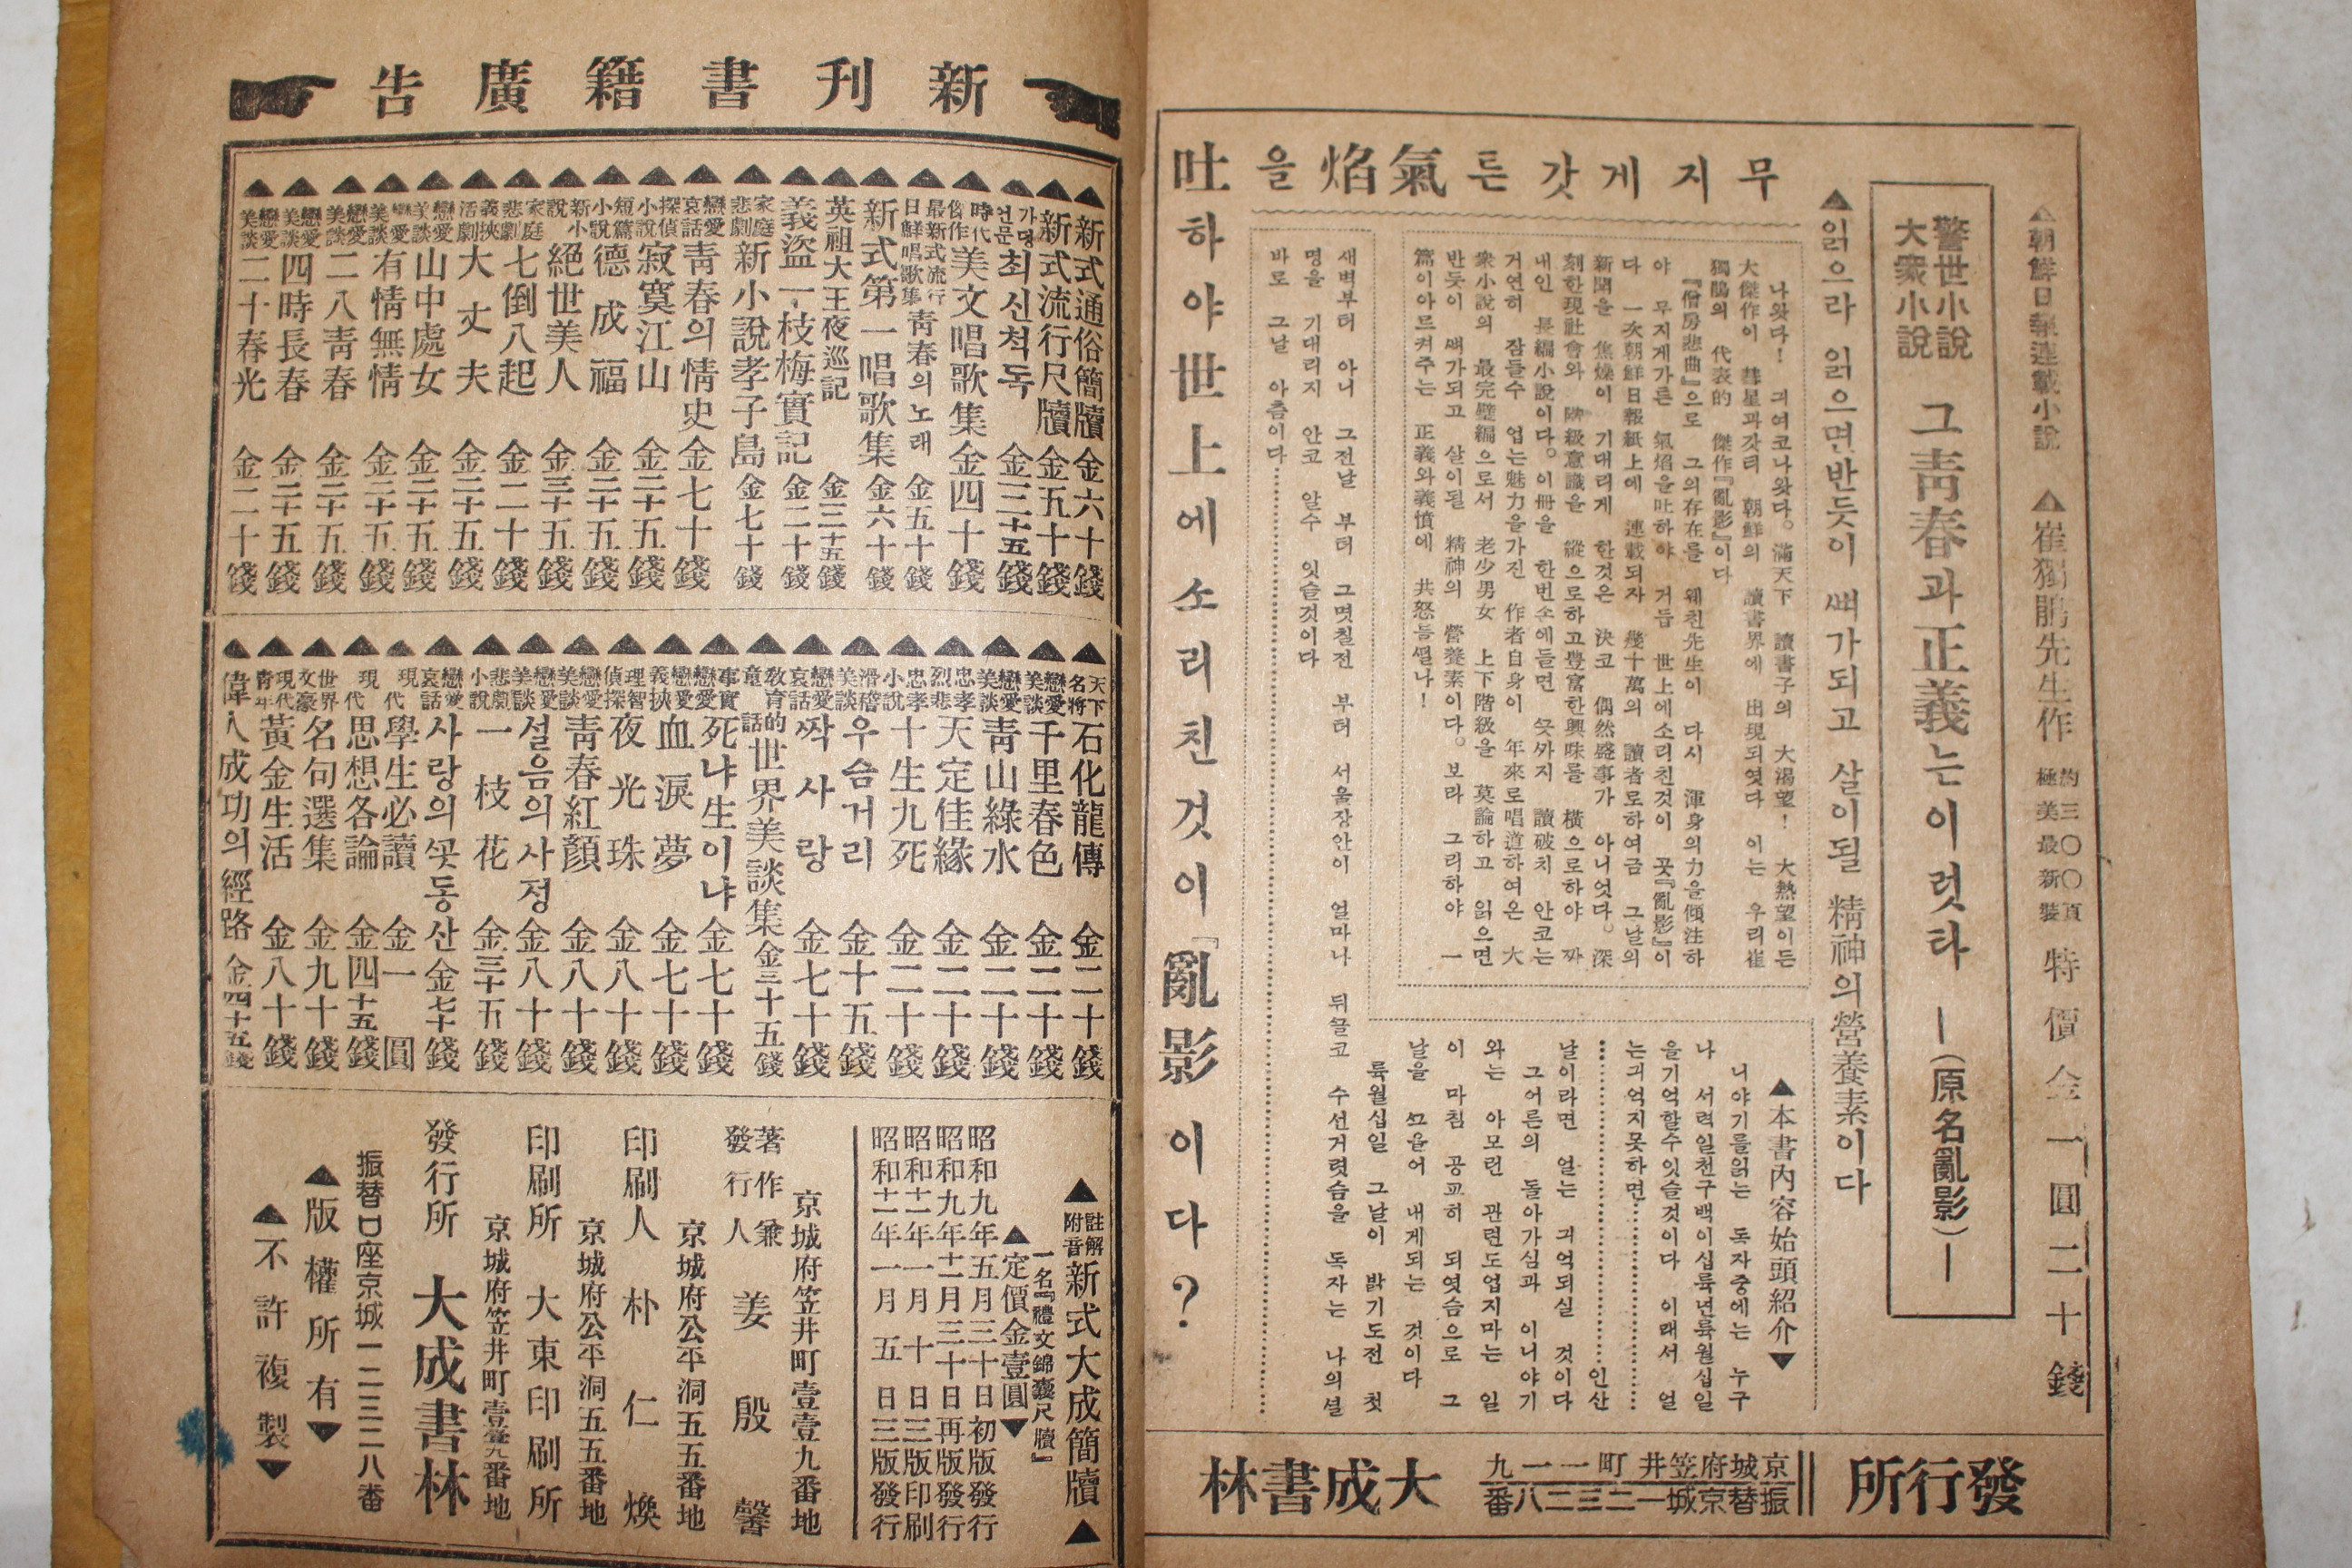 ▲朝鮮日報連載小說 ▲崔獨鵑先生作 約三〇〇頁 極美最新裝 特價金一圓二十錢
警世小說
大衆小說
그靑春과正義는이럿타 ―(原名亂影)―
▲읽으라 읽으면반듯이 뼈가되고 살이될 精神의營養素이다
무지게갓튼氣焰을吐하야世上에소리친것이「亂影」이다?
나왓다! 긔여코나왓다。滿天下 讀書子의 大渴望! 大熱望이든
大傑作이 彗星과갓티 朝鮮의 讀書界에 出現되엿다 이는 우리崔
獨鵑의 代表的 傑作『亂影』이다
『僧房悲曲』으로 그의存在를 웨친先生이 다시 渾身의力을傾注하
야 무지게가튼 氣焰을吐하야 거듭 世上에소리친것이 곳『亂影』이
다 一次朝鮮日報紙上에 連載되자 幾十萬의 讀者로하여금 그날의
新聞을 焦燥이 기대리게 한것은 決코 偶然盛事가 아니엇다。深
刻한現社會와 階級意識을 縱으로하고豊富한興味를 橫으로하야 짜
내인 長編小說이다。이冊을 한번손에들면 끗까지 讀破치 안코는
거연히 잠들수 업는魅力을가진 作者自身이 年來로唱道하여온 大
衆小說의 最完璧編으로서 老少男女 上下階級을 莫論하고 읽으면
반듯이 뼈가되고 살이될 精神의 營養素이다。보라 그리하야 一
篇이아르켜주는 正義와義憤에 共怒들떨나!
▲本書內容始頭紹介▼
니야기를읽는 독자중에는 누구
나 서력일천구백이십륙년륙월십일
을기억할수잇슬것이다 이래서 얼
는긔억지못하면……
……인산
날이라면 얼는 긔억되실 것이다
그어른의 돌아가심과 이니야기
와는 아모런 관련도업지마는 일
이 마침 공교히 되엿슴으로 그
날을 쓰을어 내게되는 것이다
륙월십일 그날이 밝기도전 첫
새벽부터 아니 그전날 부터 그몃칠전 부터 서울장안이 얼마나 뒤끌코 수선거렷슴을 독자는 나의설
명을 기대리지 안코 알수 잇슬것이다
바로 그날 아츰이다……
發行所 京城府笠井町一一九 振替京城一二三二八番 大成書林
新刊書籍廣告
▲新式通俗簡牘 金六十錢
▲新式流行尺牘 金五十錢
▲가뎡언문 최신척독 金三十五錢
▲時代傑作 美文唱歌集 金四十錢
▲最新式流行日鮮唱歌集 靑春의노래 金五十錢
▲新式第一唱歌集 金六十錢
▲英祖大王夜巡記 金三十五錢
▲義盜一枝梅實記 金二十錢
▲家庭悲劇 新小說孝子島 金七十錢
▲戀愛哀話 靑春의情史 金七十錢
▲探偵小說 寂寞江山 金二十五錢
▲短篇小說 德成福 金二十五錢
▲新小說 絕世美人 金三十五錢
▲家庭悲劇 七倒八起 金二十錢
▲義俠活劇 大丈夫 金二十五錢
▲戀愛美談 山中處女 金二十五錢
▲戀愛美談 有情無情 金二十五錢
▲戀愛美談 二八靑春 金二十五錢
▲戀愛美談 四時長春 金二十五錢
▲戀愛美談 二十春光 金二十錢
▲天下名將 石化龍傳 金二十錢
▲戀愛美談 千里春色 金二十錢
▲戀愛美談 靑山綠水 金二十錢
▲忠孝烈悲 天定佳緣 金二十錢
▲忠孝小說 十生九死 金二十錢
▲滑稽美談 우슴거리 金十五錢
▲戀愛哀話 짝사랑 金七十錢
▲敎育的童話 世界美談集 金三十五錢
▲事實戀愛 死냐生이냐 金七十錢
▲戀愛義挾 血淚夢 金七十錢
▲理智偵探 夜光珠 金八十錢
▲戀愛美談 靑春紅顏 金八十錢
▲戀愛美談 설음의사정 金八十錢
▲悲劇小說 一枝花 金三十五錢
▲戀愛哀話 사랑의꼿동산 金七十錢
▲現代 學生必讀 金一圓
▲現代 思想各論 金四十五錢
▲世界文豪 名句選集 金九十錢
▲現代靑年 黃金生活 金八十錢
▲偉人成功의經路 金四十五錢
▲註解附音 新式大成簡牘▲
一名『禮文錦囊尺牘』
▲定價金壹圓▼
昭和九年五月三十日初版發行
昭和九年十一月三十日再版發行
昭和十一年一月十日三版印刷
昭和十一年一月五日三版發行
京城府笠井町壹壹九番地
著作兼發行人 姜殷馨
京城府公平洞五五番地
印刷人 朴仁煥
京城府公平洞五五番地
印刷所 大東印刷所
京城府笠井町壹壹九番地
發行所 大成書林
振替口座京城一二三二八番
▲版權所有▼
▲不許複製▼